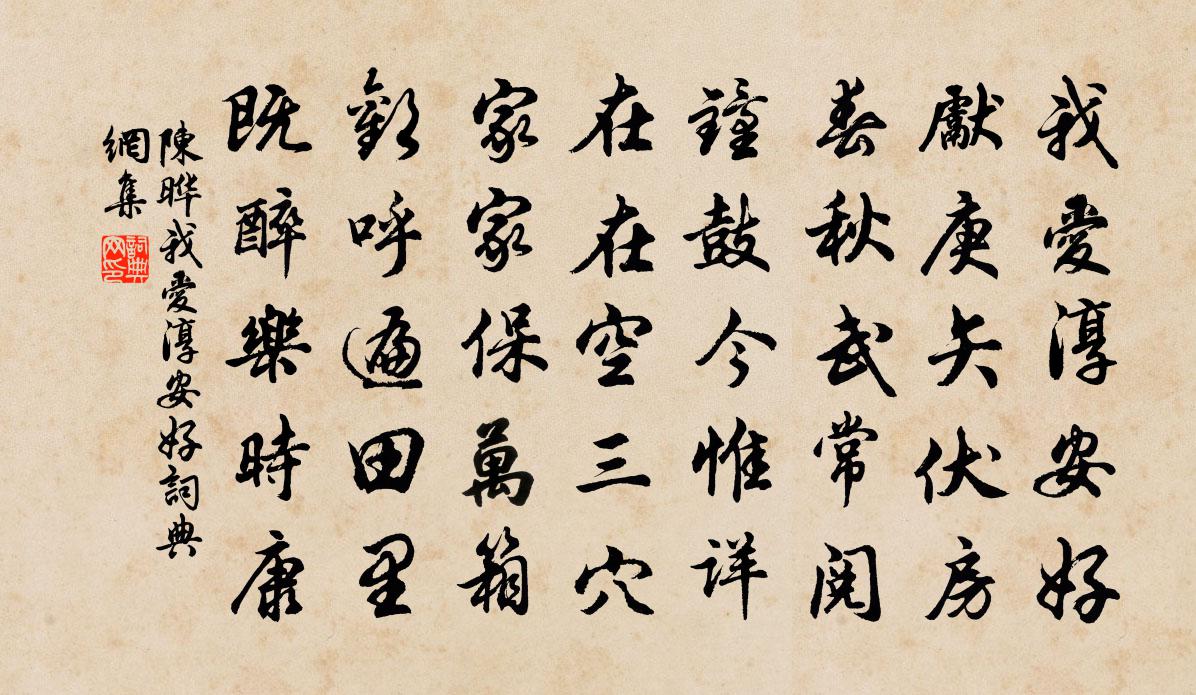 我愛淳安好
獻庚矢伏房
春秋武常閱
鐘鼓今惟詳
在在空三穴
家家保萬箱
歡呼遍田里
既醉樂時康
陳晔我愛淳安好詞典
網集
詞典
网印